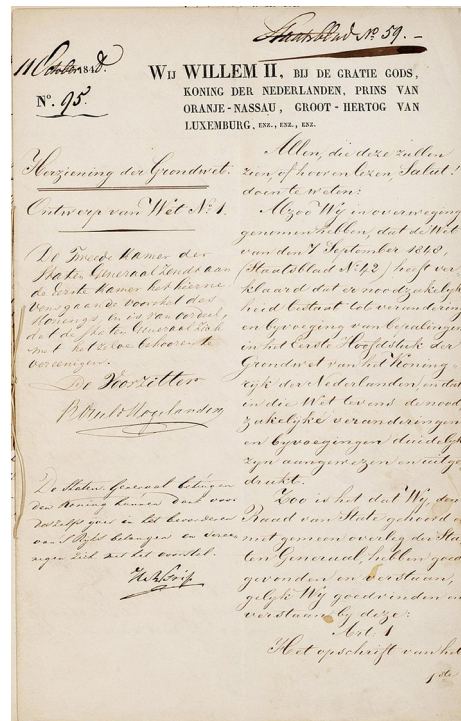 Staatsblad No. 59.
11 October 1848.
No. 95.
WIJ WILLEM II, BIJ DE GRATIE GODS,
KONING DER NEDERLANDEN, PRINS VAN
ORANJE-NASSAU, GROOT-HERTOG VAN
LUXEMBURG, ENZ., ENZ., ENZ.
Herziening der Grondwet.
Ontwerp van Wet No. 1.
De Tweede Kamer der
Staten Generaal zendt aan
de Eerste Kamer het hierne
vensgaande voorstel des
Konings, en is van oordeel,
dat de Staten Generaal zich
met hetzelve behooren te
vereenigen.
De Voorzitter
De Staten Generaal betuigen
den Koning hunnen dank voor
Deszelfs ijver in het bevorderen
van 's Rijks belangen en veree
nigen zich met het voorstel.
Allen, die deze zullen
zien of hooren lezen, Salut!
doen te weten:
Alzoo Wij in overweging
genomen hebben, dat de Wet
van den 7 September 1848,
(Staatsblad No. 42) heeft ver
klaard dat er noodzakelijk
heid bestaat tot verandering
en bijvoeging van bepalingen
in het Eerste Hoofdstuk der
Grondwet van het Koning-
rijk der Nederlanden, en dat
in die Wet tevens de nood
zakelijke veranderingen
en bijvoegingen duidelijk
zyn aangewezen en uitge
drukt.
Zoo is het dat Wij, den
Raad van State gehoord en
met gemeen overleg der Sta
ten Generaal, hebben goed
gevonden en verstaan,
gelijk Wij goedvinden en
verstaan by deze:
Art. 1
Het opschrift van het
1ste